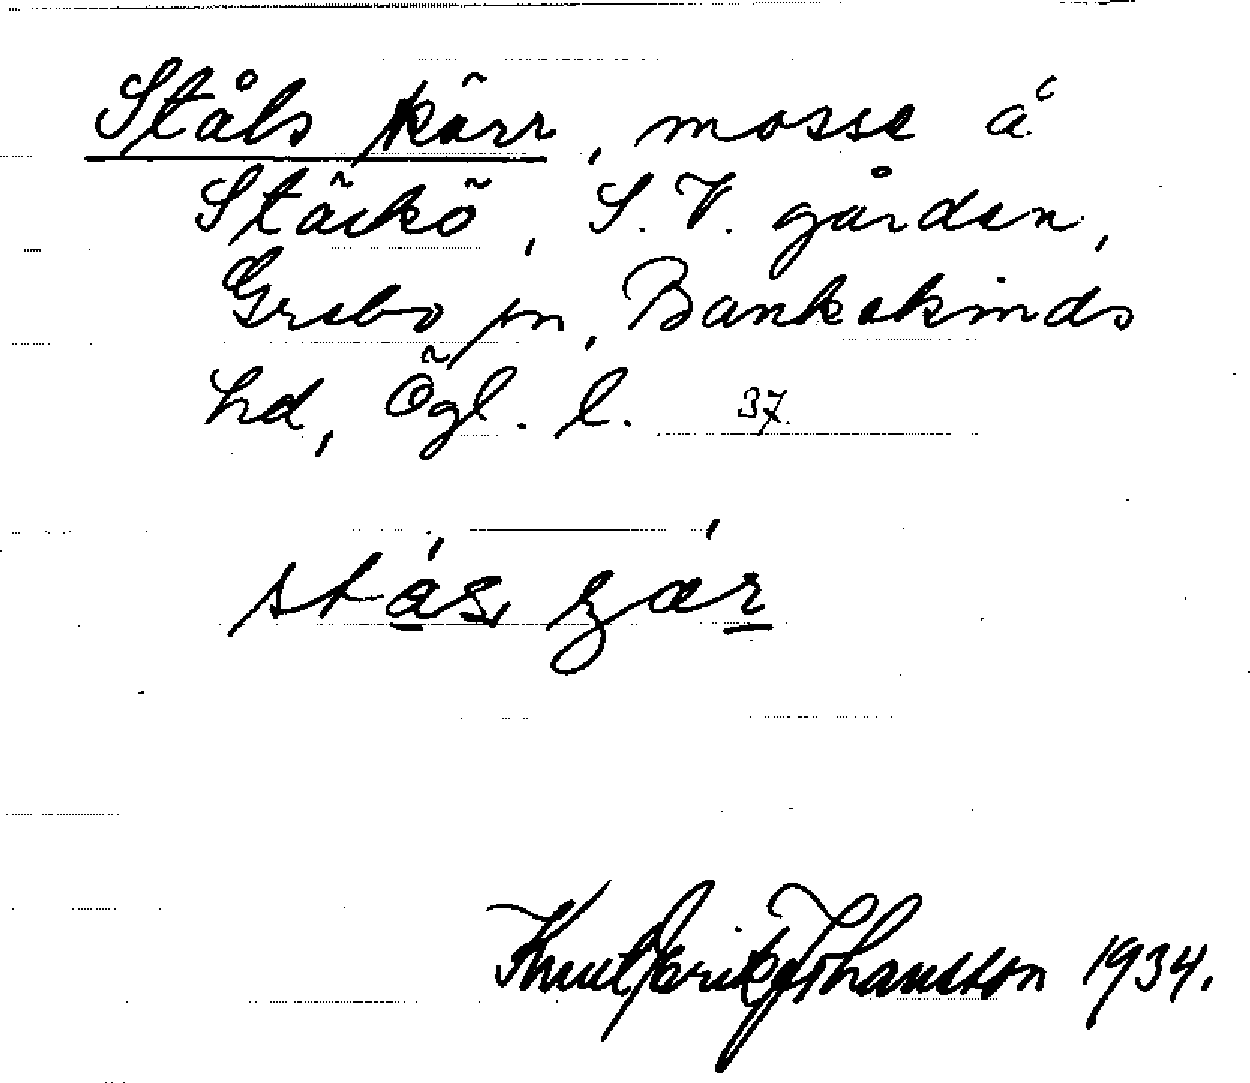 Ståls kärr, mosse å
Stäckö, S. V. gården,
Grebo sn, Bankekinds
hd, Ögl. l. 37.
Knut Erik Johansson 1934.